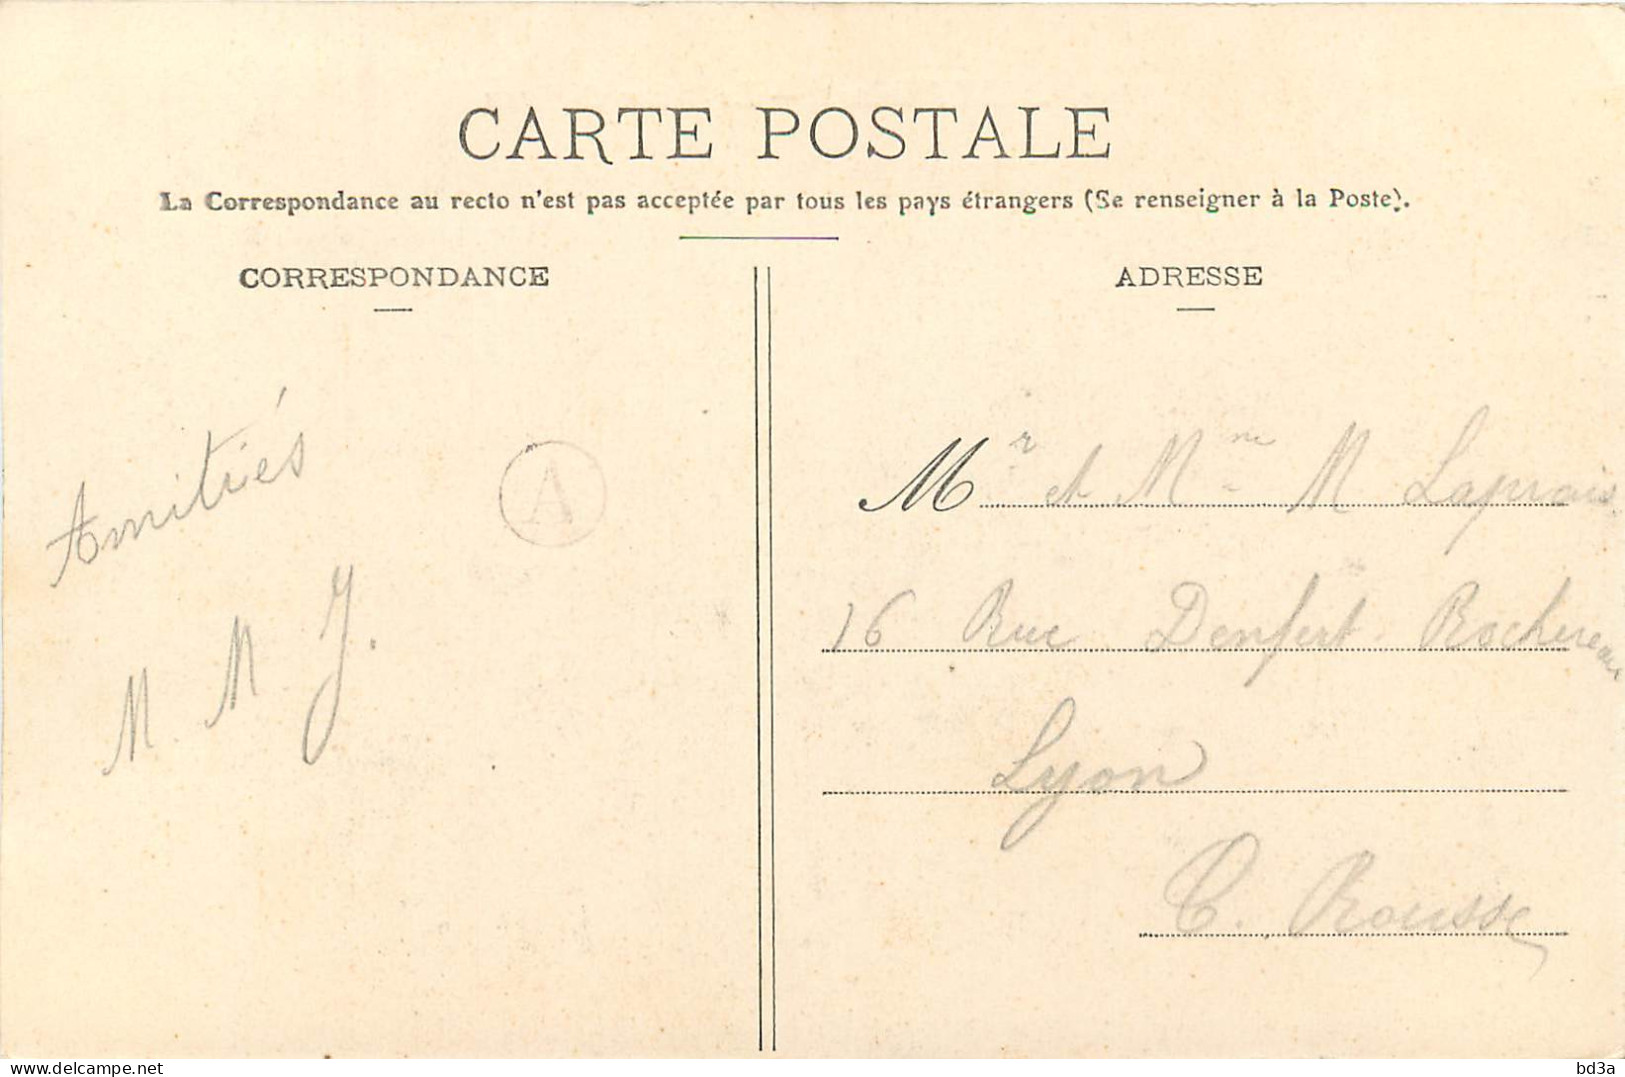 CARTE POSTALE
La Correspondance au recto n'est pas acceptée par tous les pays étrangers (Se renseigner à la Poste).
CORRESPONDANCE
ADRESSE
Amitiés
M. M J.
A
Mr et Mme M Laprais
16 Rue Denfert Rochereau
Lyon
C. Rousse
delcampe.net
bd3a